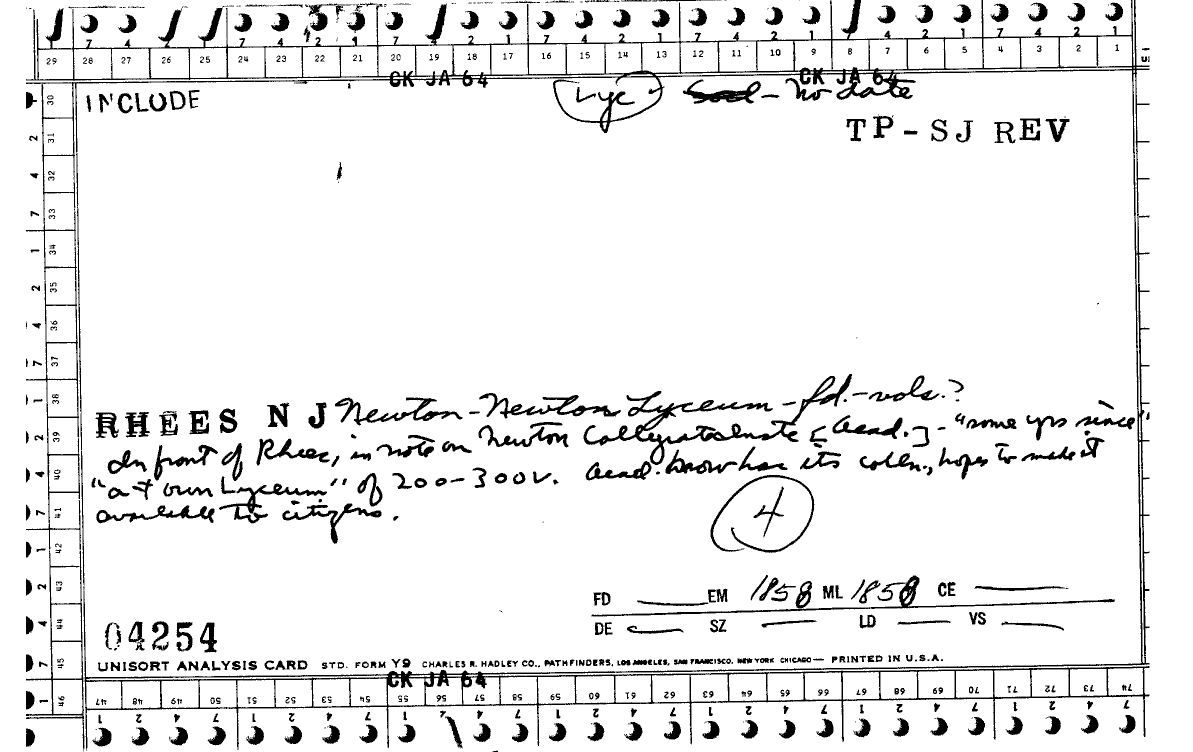 7 4 2 1 7 4 2 1 7 4 2 1 7 4 2 1 7 4 2 1
29 28 27 26 25 24 23 22 21 20 19 18 17 16 15 14 13 12 11 10 9 8 7 6 5 4 3 2 1
CK JA 64 CK JA 64
INCLUDE Lyc - no date
TP-SJ REV
30
31
32
33
34
35
36
37
38
39
40
41
42
43
44
45
46
RHEES N J Newton-Newton Lyceum-fd.-vols.?
In front of Rhees, in note on Newton Collegiate [Acad.] - "some yrs since"
"a town Lyceum" of 200-300v. Acad. now has its colln., hopes to make it
available to citizens.
4
FD EM 1858 ML 1858 CE
DE SZ LD VS
04254
UNISORT ANALYSIS CARD STD. FORM Y9 CHARLES R. HADLEY CO., PATHFINDERS, LOS ANGELES, SAN FRANCISCO, NEW YORK CHICAGO — PRINTED IN U.S.A.
CK JA 64
47 48 49 50 51 52 53 54 55 56 57 58 59 60 61 62 63 64 65 66 67 68 69 70 71 72 73 74